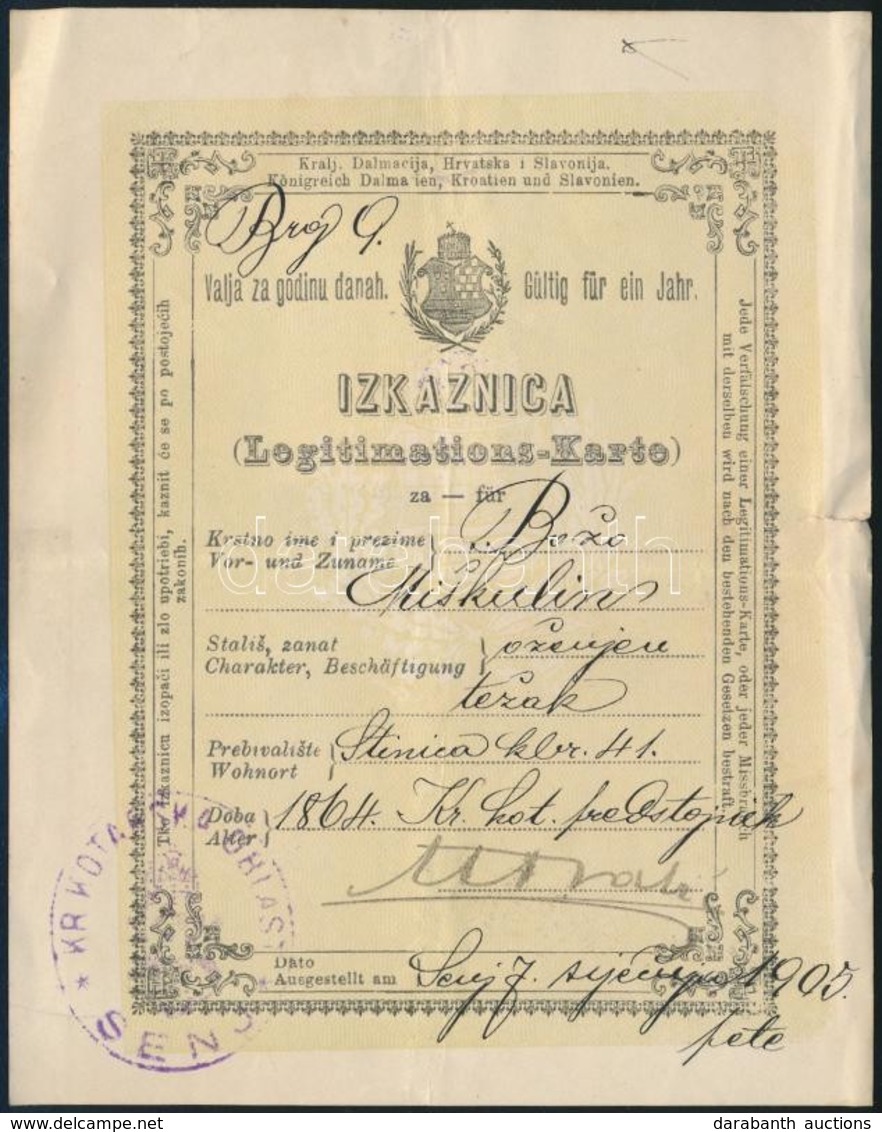 Kralj. Dalmacija, Hrvatska i Slavonija.
Königreich Dalma ien, Kroatien und Slavonien.
Broj 9.
Valja za godinu danah. Gültig für ein Jahr.
IZKAZNICA
(Legitimations-Karte)
za — für
Krstno ime i prezime
Vor- und Zuname
Božo
Miškulin
Stališ, zanat
Charakter, Beschäftigung
oženjen
težak
Prebivalište
Wohnort
Stinica kbr. 41.
Doba
Alter
1864. Kr. kot. predstojnik
Dato
Ausgestellt am
Senj 7. siječnja 1905.
pete
Tko izkaznicu izopači ili zlo upotriebi, kaznit će se po postojećih
zakonih.
Jede Verfälschung einer Legitimations-Karte, oder jeder Missbrauch
mit derselben wird nach den bestehenden Gesetzen bestraft.
* KR KOTARSKA OBLAST *
SENJ
darabanth
darabanth auctions